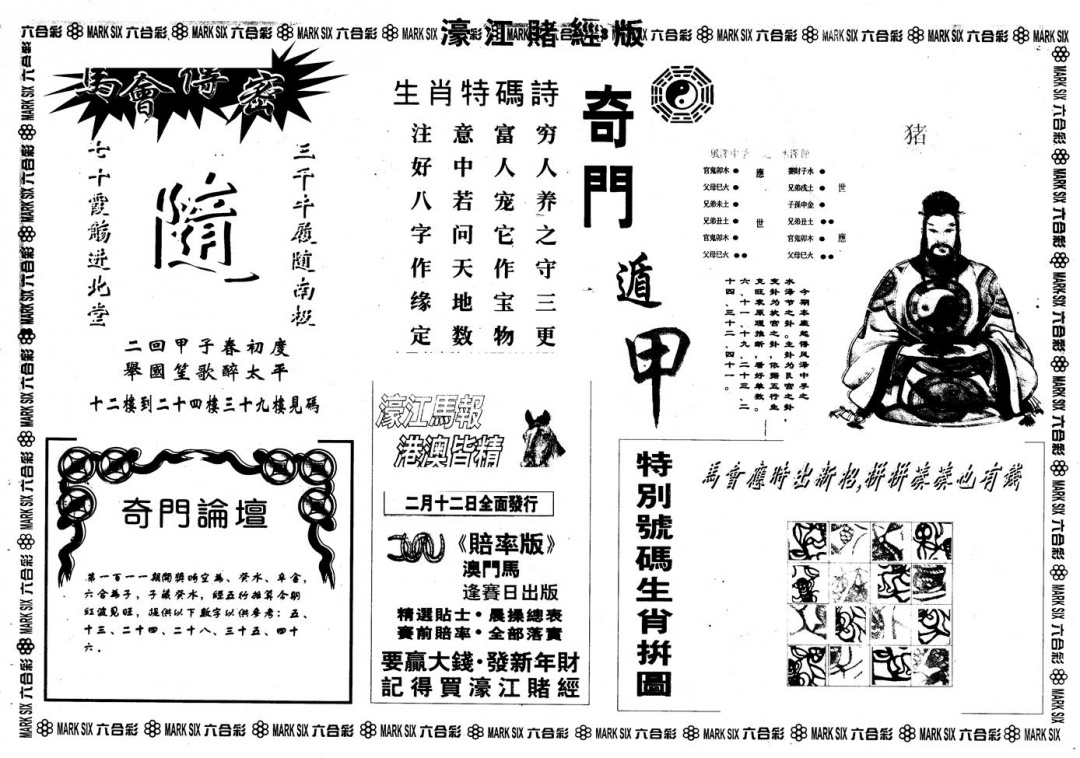 濠江賭經版
六合彩 MARK SIX 六合彩 MARK SIX 六合彩 MARK SIX 六合彩 MARK SIX
馬會傳密
三千牛履隨南极
隨
七十霞觴进北堂
二回甲子春初度
舉國笙歌醉太平
十二樓到二十四樓三十九樓見碼
生肖特碼詩
穷人养之守三更
富人宠它作宝物
意中若问天地数
注好八字作缘定
奇門遁甲
猪
風澤中孚 之 水澤節
官鬼卯木 應 妻財子水
父母巳火 兄弟戌土 世
兄弟未土 子孫申金
兄弟丑土 世 兄弟丑土
官鬼卯木 官鬼卯木 應
父母巳火 父母巳火
水泽节之卦。主卦为艮宫之卦，
支卦为坎宫之卦，依据五行生
支旺衰原理推断，看好单数。
六、十一、十九、二十三、二
十四、三十二、四十一。
奇門論壇
第一百一一期開獎時空為、癸水、卓金，
六合為子，子藏癸水，經五行推算令期
紅波見旺，提供以下數字以供参考：五、
十三、二十四、二十八、三十五、四十
六。
濠江馬報
港澳皆精
二月十二日全面發行
《賠率版》
澳門馬
逢賽日出版
精選貼士·晨操總表
賽前賠率·全部落實
要贏大錢·發新年財
記得買濠江賭經
特別號碼生肖拼圖
馬會應時出新招,拼拼湊湊也有錢
MARK SIX 六合彩 MARK SIX 六合彩 MARK SIX 六合彩 MARK SIX 六合彩 MARK SIX 六合彩 MARK SIX 六合彩 MARK SIX 六合彩 MARK SIX 六合彩 MARK SIX 六合彩 MARK SIX